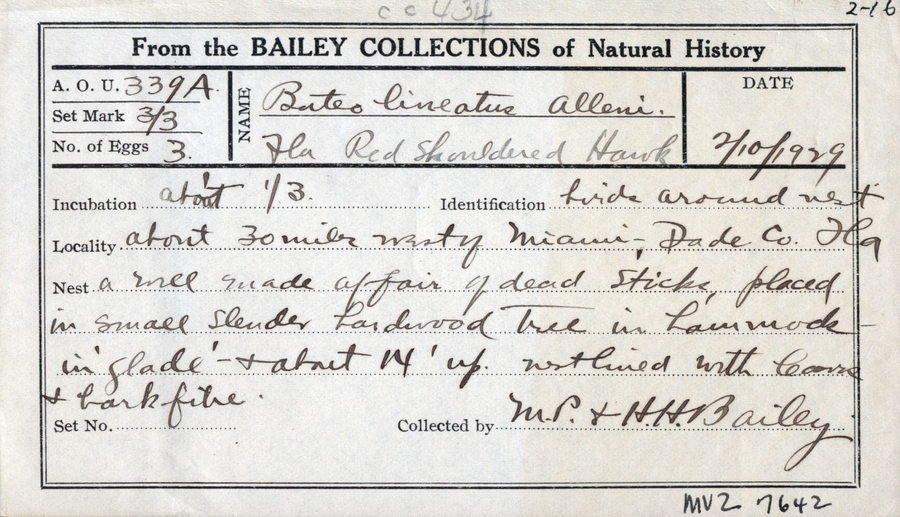 cc 434
2-16
From the BAILEY COLLECTIONS of Natural History
A. O. U. 339A.
Set Mark 3/3
No. of Eggs 3.
NAME
Buteo lineatus alleni.
Fla Red Shouldered Hawk
DATE
2/10/1929
Incubation about 1/3. Identification birds around nest
Locality about 30 miles west of Miami-, Dade Co. Fla
Nest a well made affair of dead sticks, placed
in small slender hardwood tree in hammock -
in 'glade' - & about 14' up. nest lined with leaves
& bark fibre.
Set No.
Collected by M.P. & H.H. Bailey
MVZ 7642